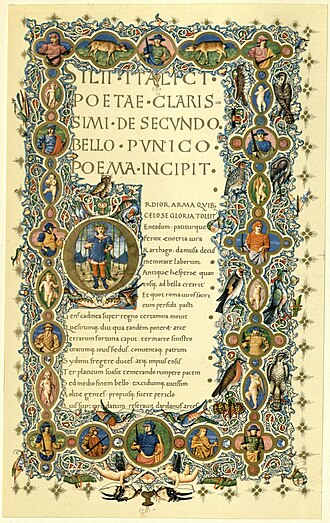 SILII · ITALICI ·
POETAE · CLARIS=
SIMI · DE SECVNDO
BELLO · PVNICO
POEMA · INCIPIT ·
RDIOR ARMA QVIB
CELO SE GLORIA TOLLIT
Eneadum: patiturque
ferox enotria iura
Karthago: da musa decus
memorare laborum
Antique hesperie quan
tosq, ad bella crearit
Et quot roma uiros sacri
cum perfida pacti
Gens cadmea super regno certamina mouit
Quesitumq; diu qua tandem poneret arce
Terrarum fortuna caput ter marte sinistro
Iuratumq; ioui fedus conuentaq; patrum
Sydonii fregere duces: atq, impius ensis
Ter placitam suasit temerando rumpere pacem
Sed medio finem bello excidiumq; uicissim
Molite gentes: propiusq; fuere periclo